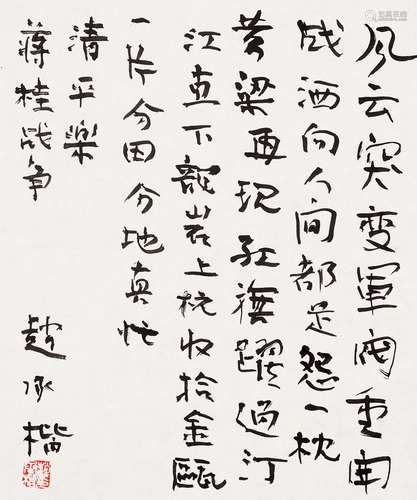 风云突变軍阀重開
战洒向人间都是怨一枕
黄梁再现红旗躍过汀
江直下龍岩上杭收拾金甌
一片分田分地真忙
清平樂
蒋桂战争
趙承楷